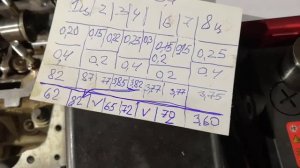 1ц 2 3 4 6 7 8ц
0,20 0,15 0,22 0,25 0,3 0,15 0,25
0,4 0,2 0,4 0,2 0,2 0,4
82 87 77 385 382 377 377 3,75
62 82 V 65 72 V 72 3,60